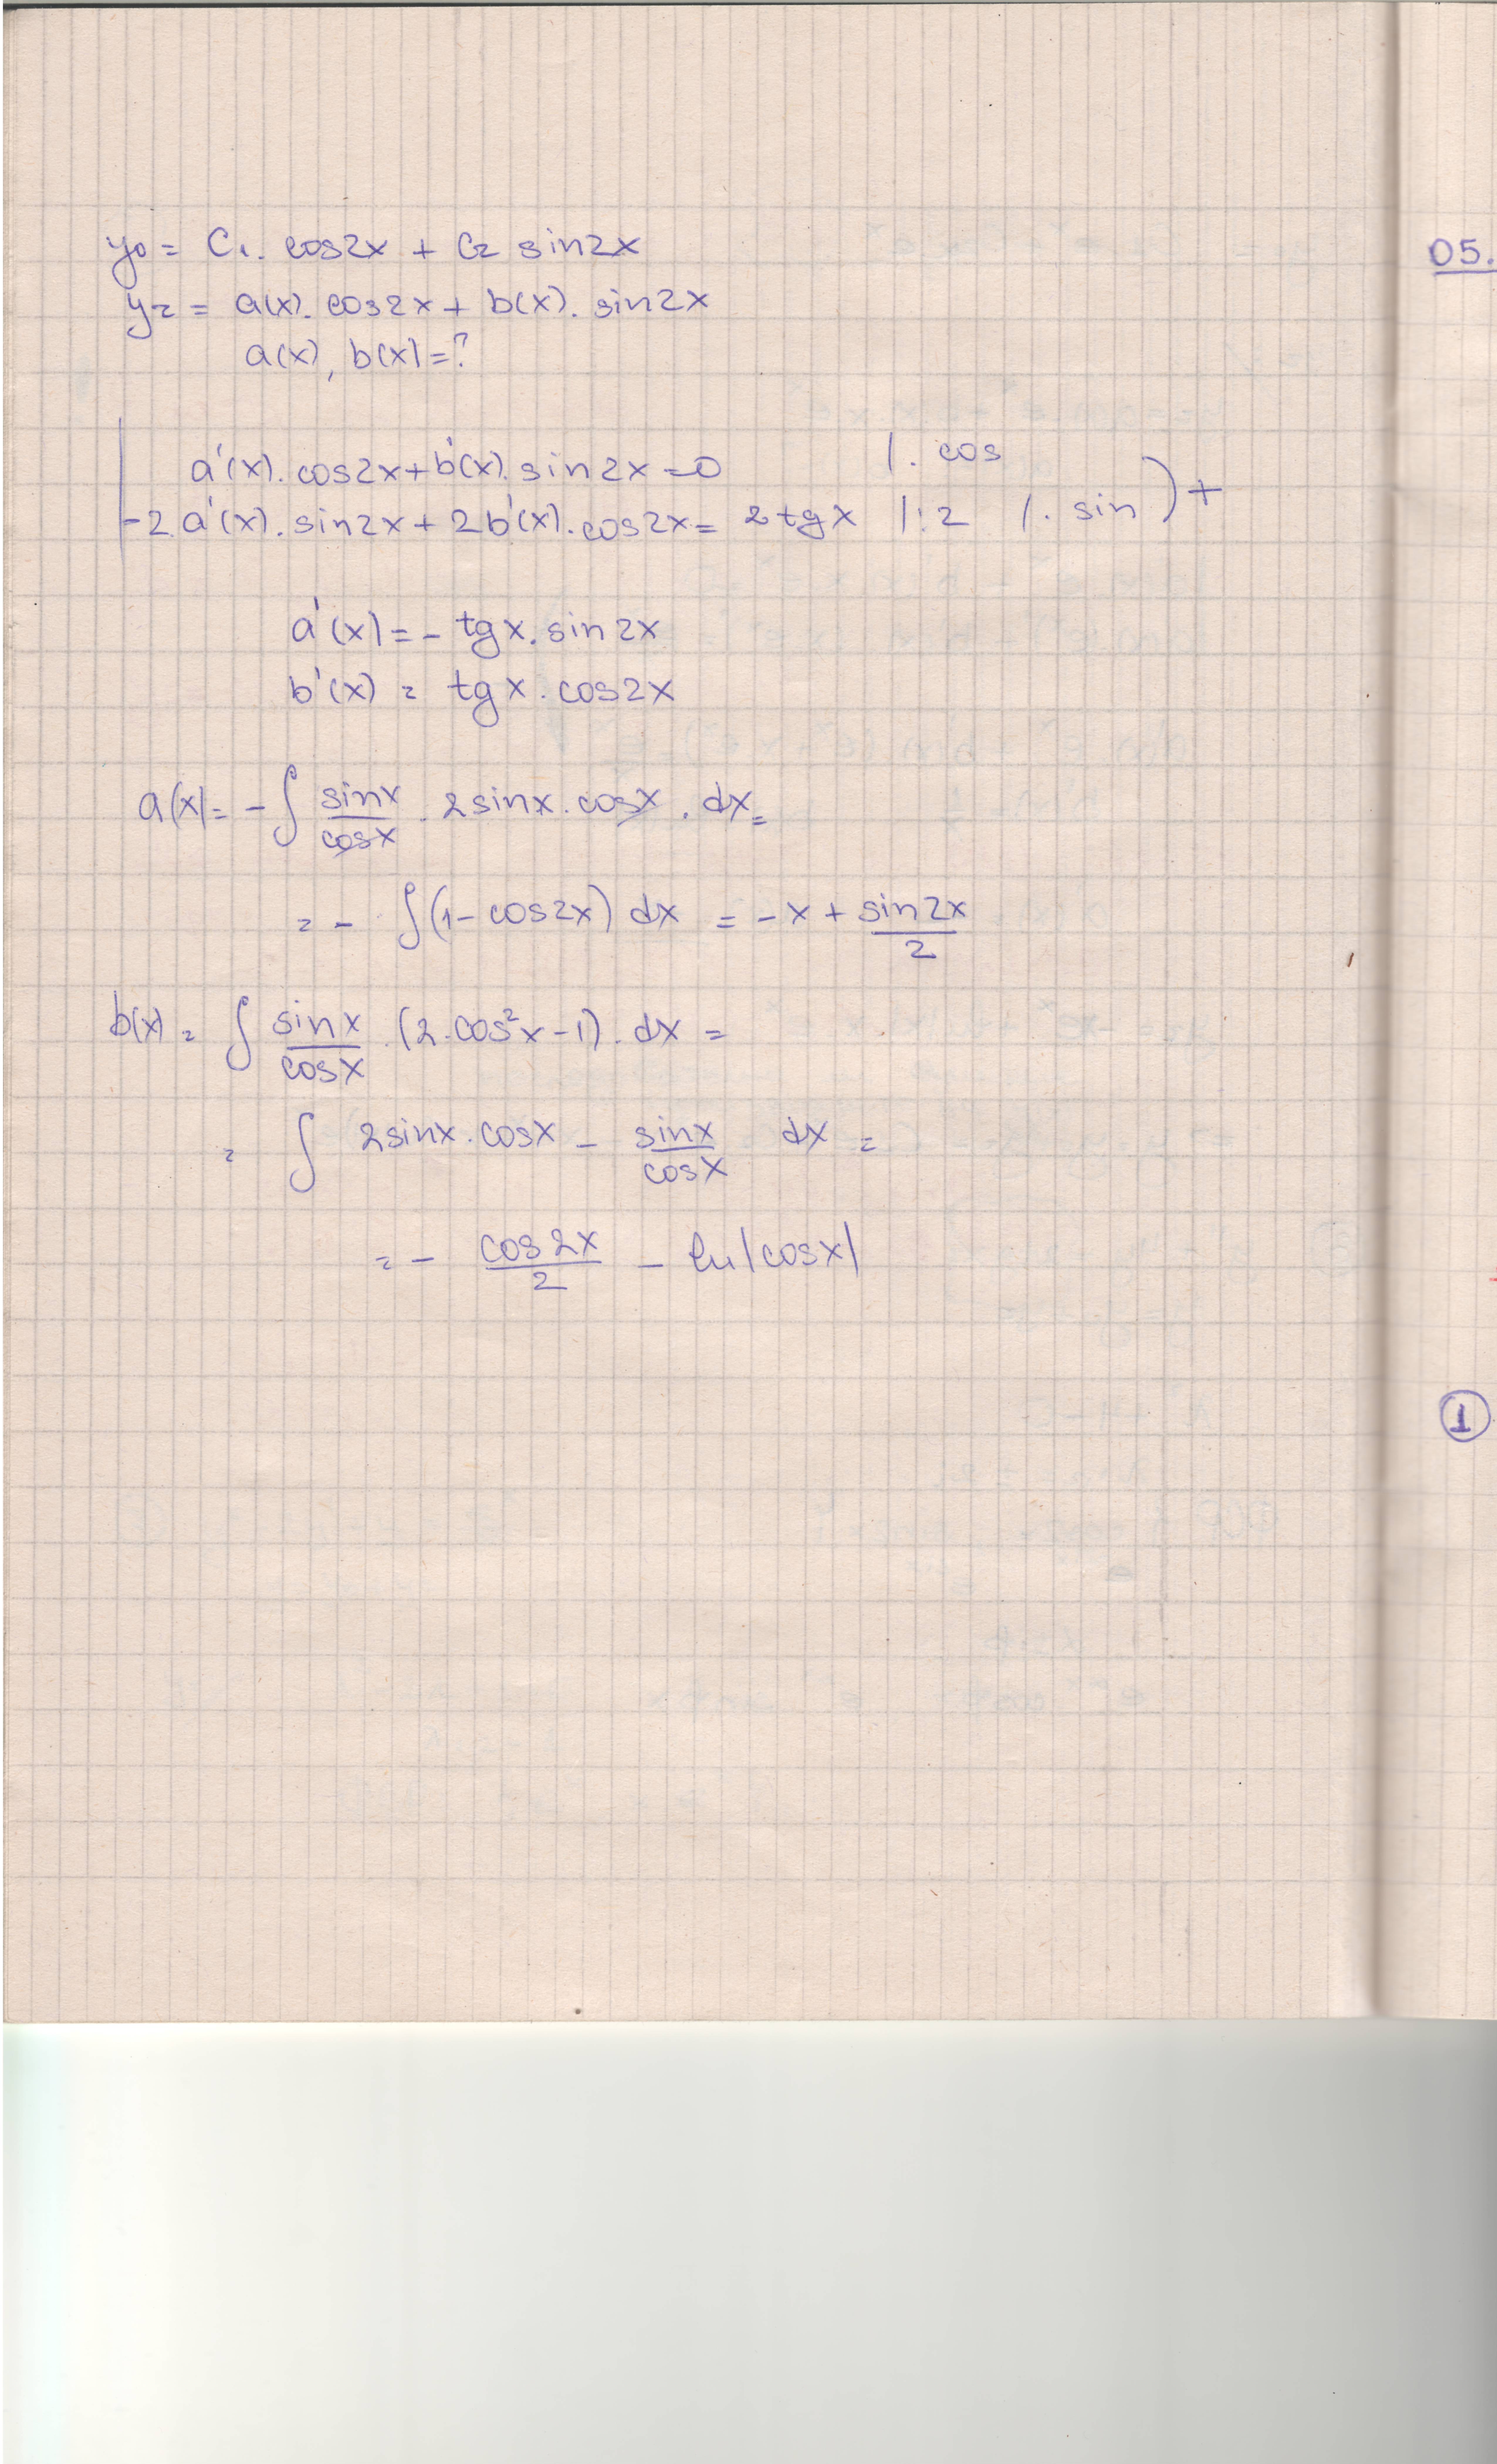 y₀ = C₁. cos2x + C₂ sin2x
yz = a(x). cos2x + b(x). sin2x
a(x), b(x) = ?
a'(x). cos2x + b'(x). sin2x = 0 |. cos
-2.a'(x). sin2x + 2b'(x). cos2x = 2tgx |:2 |. sin ) +
a'(x) = - tgx. sin2x
b'(x) = tgx. cos2x
a(x) = - ∫ sinx/cosx . 2sinx. cosx . dx =
= - ∫(1 - cos2x) dx = -x + sin2x/2
b(x) = ∫ sinx/cosx . (2.cos²x - 1). dx =
= ∫ 2sinx. cosx - sinx/cosx dx =
= - cos2x/2 - ln|cosx|
05.
1